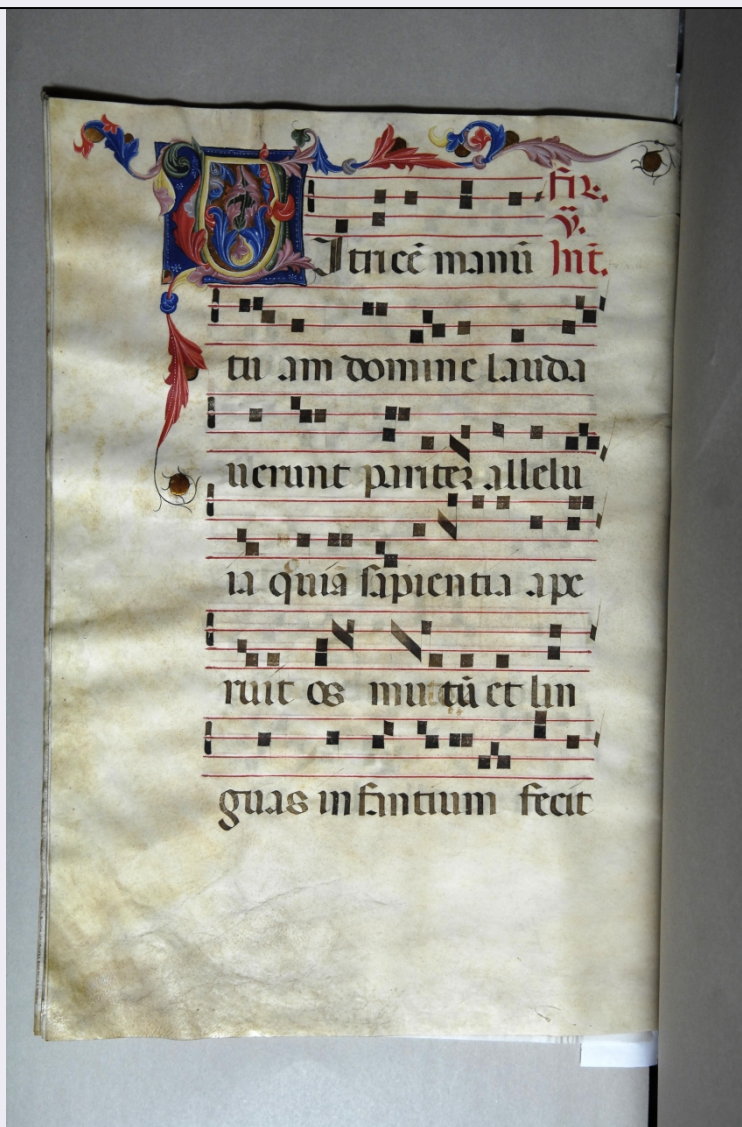 fir.
v.
VItricē manū Int.
tu am domine lauda
uerunt pariter allelu
ia quia sapientia ape
ruit os mutū et lin
guas infantium fecit